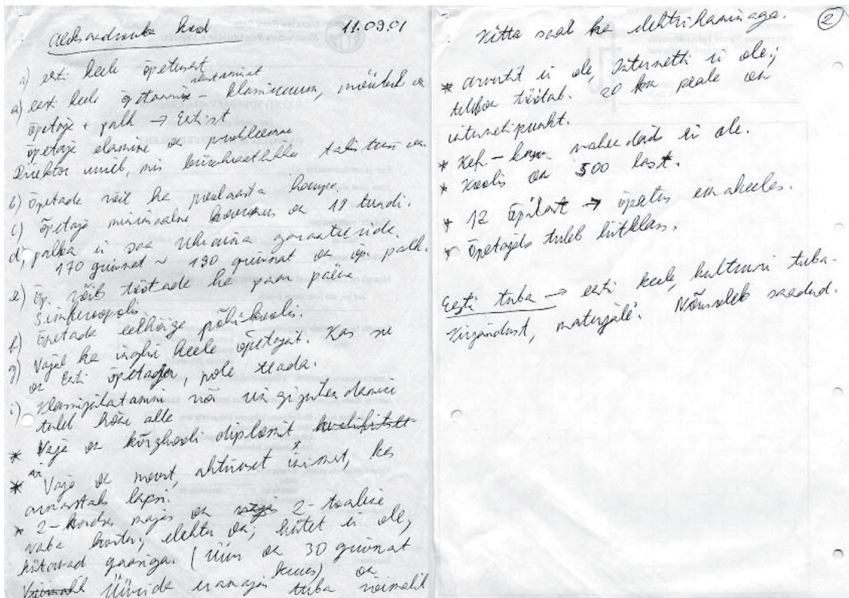 Aleksandrovka kool 11.09.01
eesti keele õpetusest
a) eesti keele õpetamine - klassiruum, mööbel on
õpetaja + palk → Eestist
õpetaja elamine on probleem
Direktor uurib, mis
b) Õpetada võib ka
c) õpetaja minimaalne koormus on 18 tundi.
d) palka ei saa Ukraina garanteerida.
170 grivnat ~ 190 grivnat on õp. palk.
e) Õp. võib töötada ka paar päeva
Simferoopolis
f) Õpetada eelkõige põhikoolis.
g) Vajal ka inglise keele õpetajat. Kas see
on Eesti õpetaja, pole teada.
i) Klassijuhatamine või ringijuhendamine
tuleb kõne alla
* Vaja on kõrgkooli diplomit
* Vaja on noort, aktiivset inimest, kes
armastab lapsi.
* 2-kordses majas on 2-toaline
vaba korter, elekter on, kütet ei ole,
kütavad gaasiga. (üür on 30 grivnat
kuus) on
Üürida eramajas tuba võimalik
2
Kütta saab ka elektrikaminaga.
* Arvutit ei ole, Internetti ei ole;
telefon töötab. 20 km peale on
internetipunkt.
* Keh-kasv. vahendeid ei ole.
* Koolis on 500 last.
* 12 õpilast → õpetus emakeeles.
* Õpetajale tuleb liitklass.
Eesti tuba → eesti keele, kultuuri tuba.
Kirjandust, materjale. Nõusolek saadud.